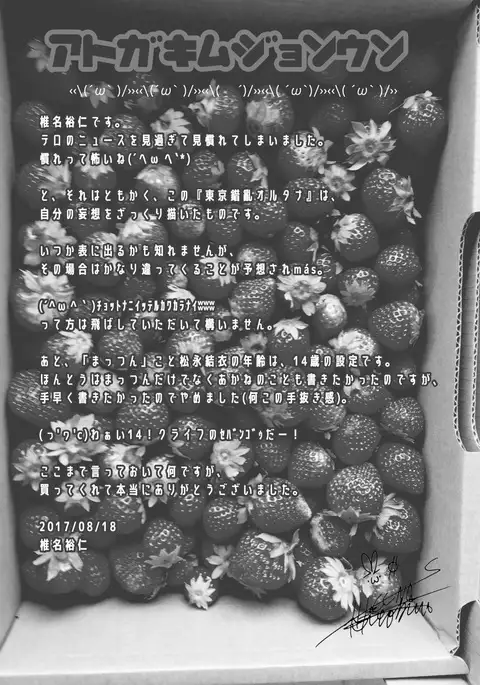 アトガキムジョンウン
‹‹\(´ω` )/››‹‹\( ´ω` )/››‹‹\( ´ )/››‹‹\( ´ω`)/››‹‹\( ´ω` )/››
椎名裕仁です。
テロのニュースを見過ぎて見慣れてしまいました。
慣れって怖いね(´ヘωヘ`*)
と、それはともかく、この『東京錯乱オルタナ』は、
自分の妄想をざっくり描いたものです。
いつか表に出るかも知れませんが、
その場合はかなり違ってくることが予想されmás。
(´^ω^`)ﾁｮｯﾄﾅﾆｲｯﾃﾙｶﾜｶﾗﾅｲwww
って方は飛ばしていただいて構いません。
あと、「まっつん」こと松永結衣の年齢は、14歳の設定です。
ほんとうはまっつんだけでなくあかねのことも書きたかったのですが、
手早く書きたかったのでやめました(何この手抜き感)。
(っ'ヮ'c)わぁい14！クライフのｾﾊﾞﾝｺﾞｩだー！
ここまで言っておいて何ですが、
買ってくれて本当にありがとうございました。
2017/08/18
椎名裕仁